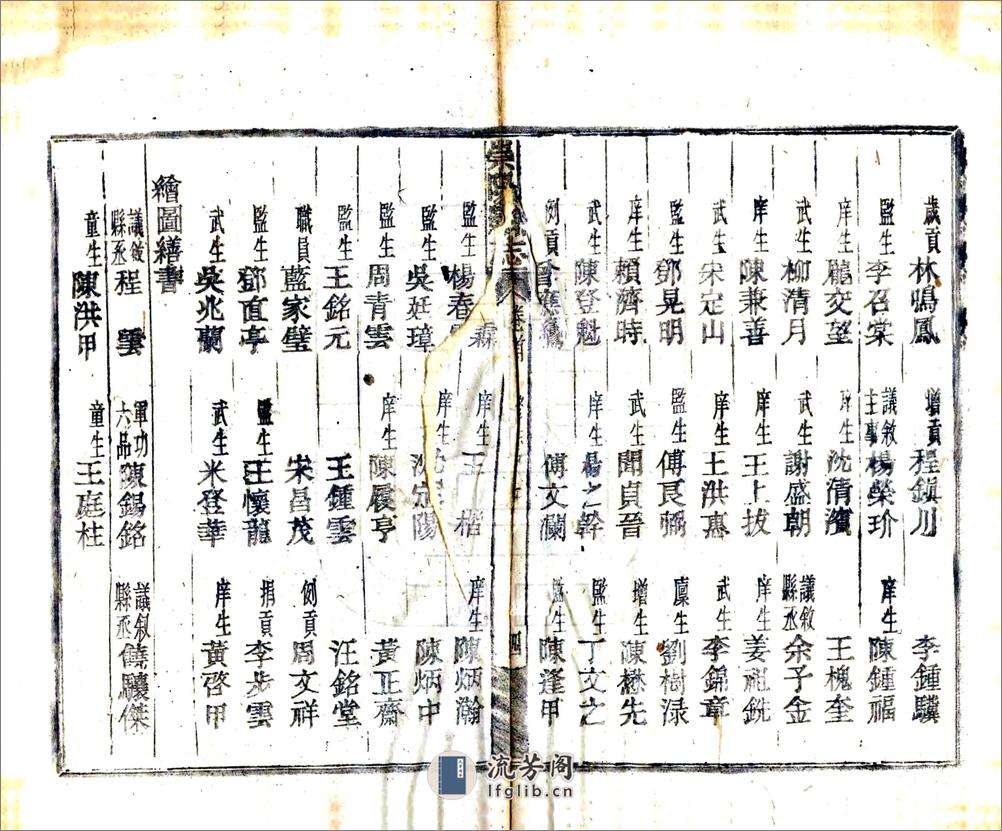 歲貢林鳴鳳 增貢程鎮川 李鍾驥
監生李召棠 議敘主事楊榮玠 庠生陳鍾福
庠生龎交望 庠生沈清濱 王槐奎
武生柳清月 武生謝盛朝 議敘縣丞余子金
庠生陳兼善 庠生王上拔 庠生姜祖銑
武生宋定山 庠生王洪惠 武生李錦章
監生鄧晃明 監生傅良弼 廩生劉樹渌
庠生賴濟時 武生聞貞晉 增生陳懋先
武生陳登魁 庠生楊之幹 監生丁文之
例貢 傅文瀾 監生陳逢甲
志 卷首
監生楊春霖 庠生王楷 庠生陳炳瀚
監生吳廷璋 庠生沈定陽 陳炳中
監生周青雲 庠生陳履亨 黃正齋
監生王銘元 王鍾雲 汪銘堂
職員藍家璧 宋昌茂 例貢周文祥
監生鄧直亭 監生王懷龍 捐貢李步雲
武生吳兆蘭 武生米登華 庠生黃啓甲
繪圖繕書
議敘縣丞程雲 軍功六品陳錫銘 議敘縣丞饒驤傑
童生陳洪甲 童生王庭桂
流芳阁
lfglib.cn